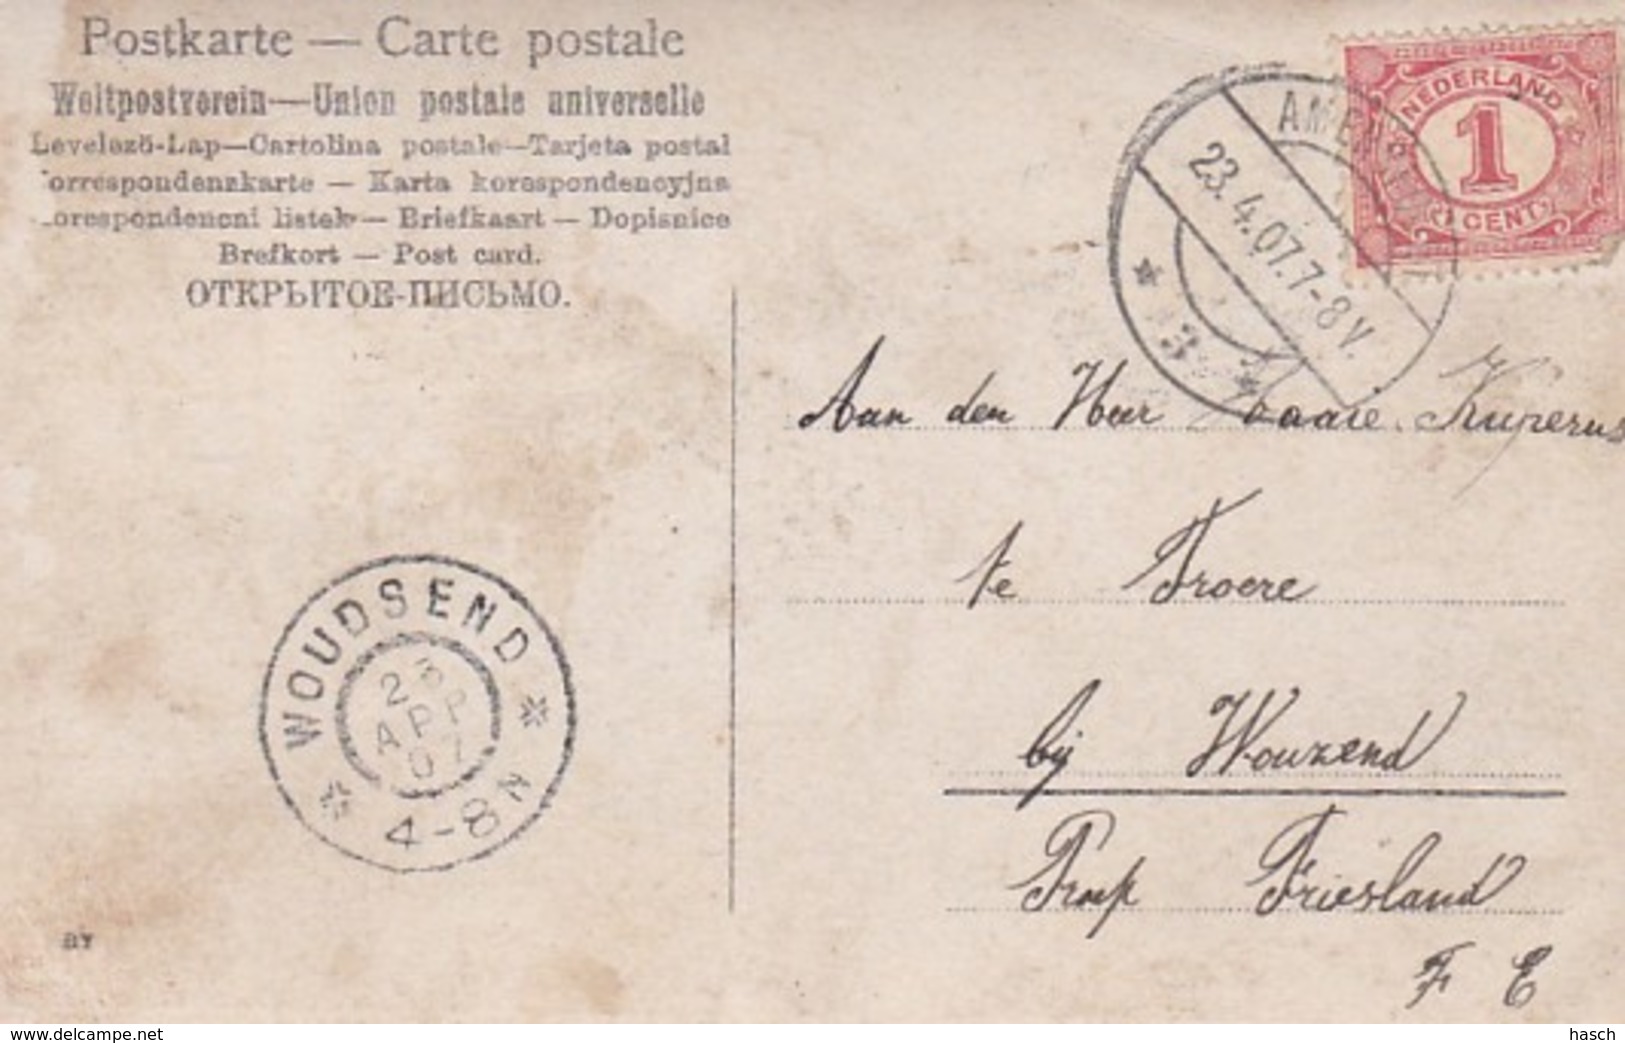 Postkarte — Carte postale
Weltpostverein—Union postale universelle
Levelező-Lap—Cartolina postale—Tarjeta postal
orrespondenzkarte — Karta korespondencyjna
orespondencní listek — Briefkaart — Dopisnice
Brefkort — Post card.
ОТКРЫТОЕ-ПИСЬМО.
NEDERLAND
1
1 CENT
23.4.07.7-8V.
3
Aan den Heer Kuperus
te Troere
bij Wouzend
Prop Friesland
F E
WOUDSEND
23
APR
07
4-8N
delcampe.net
hasch